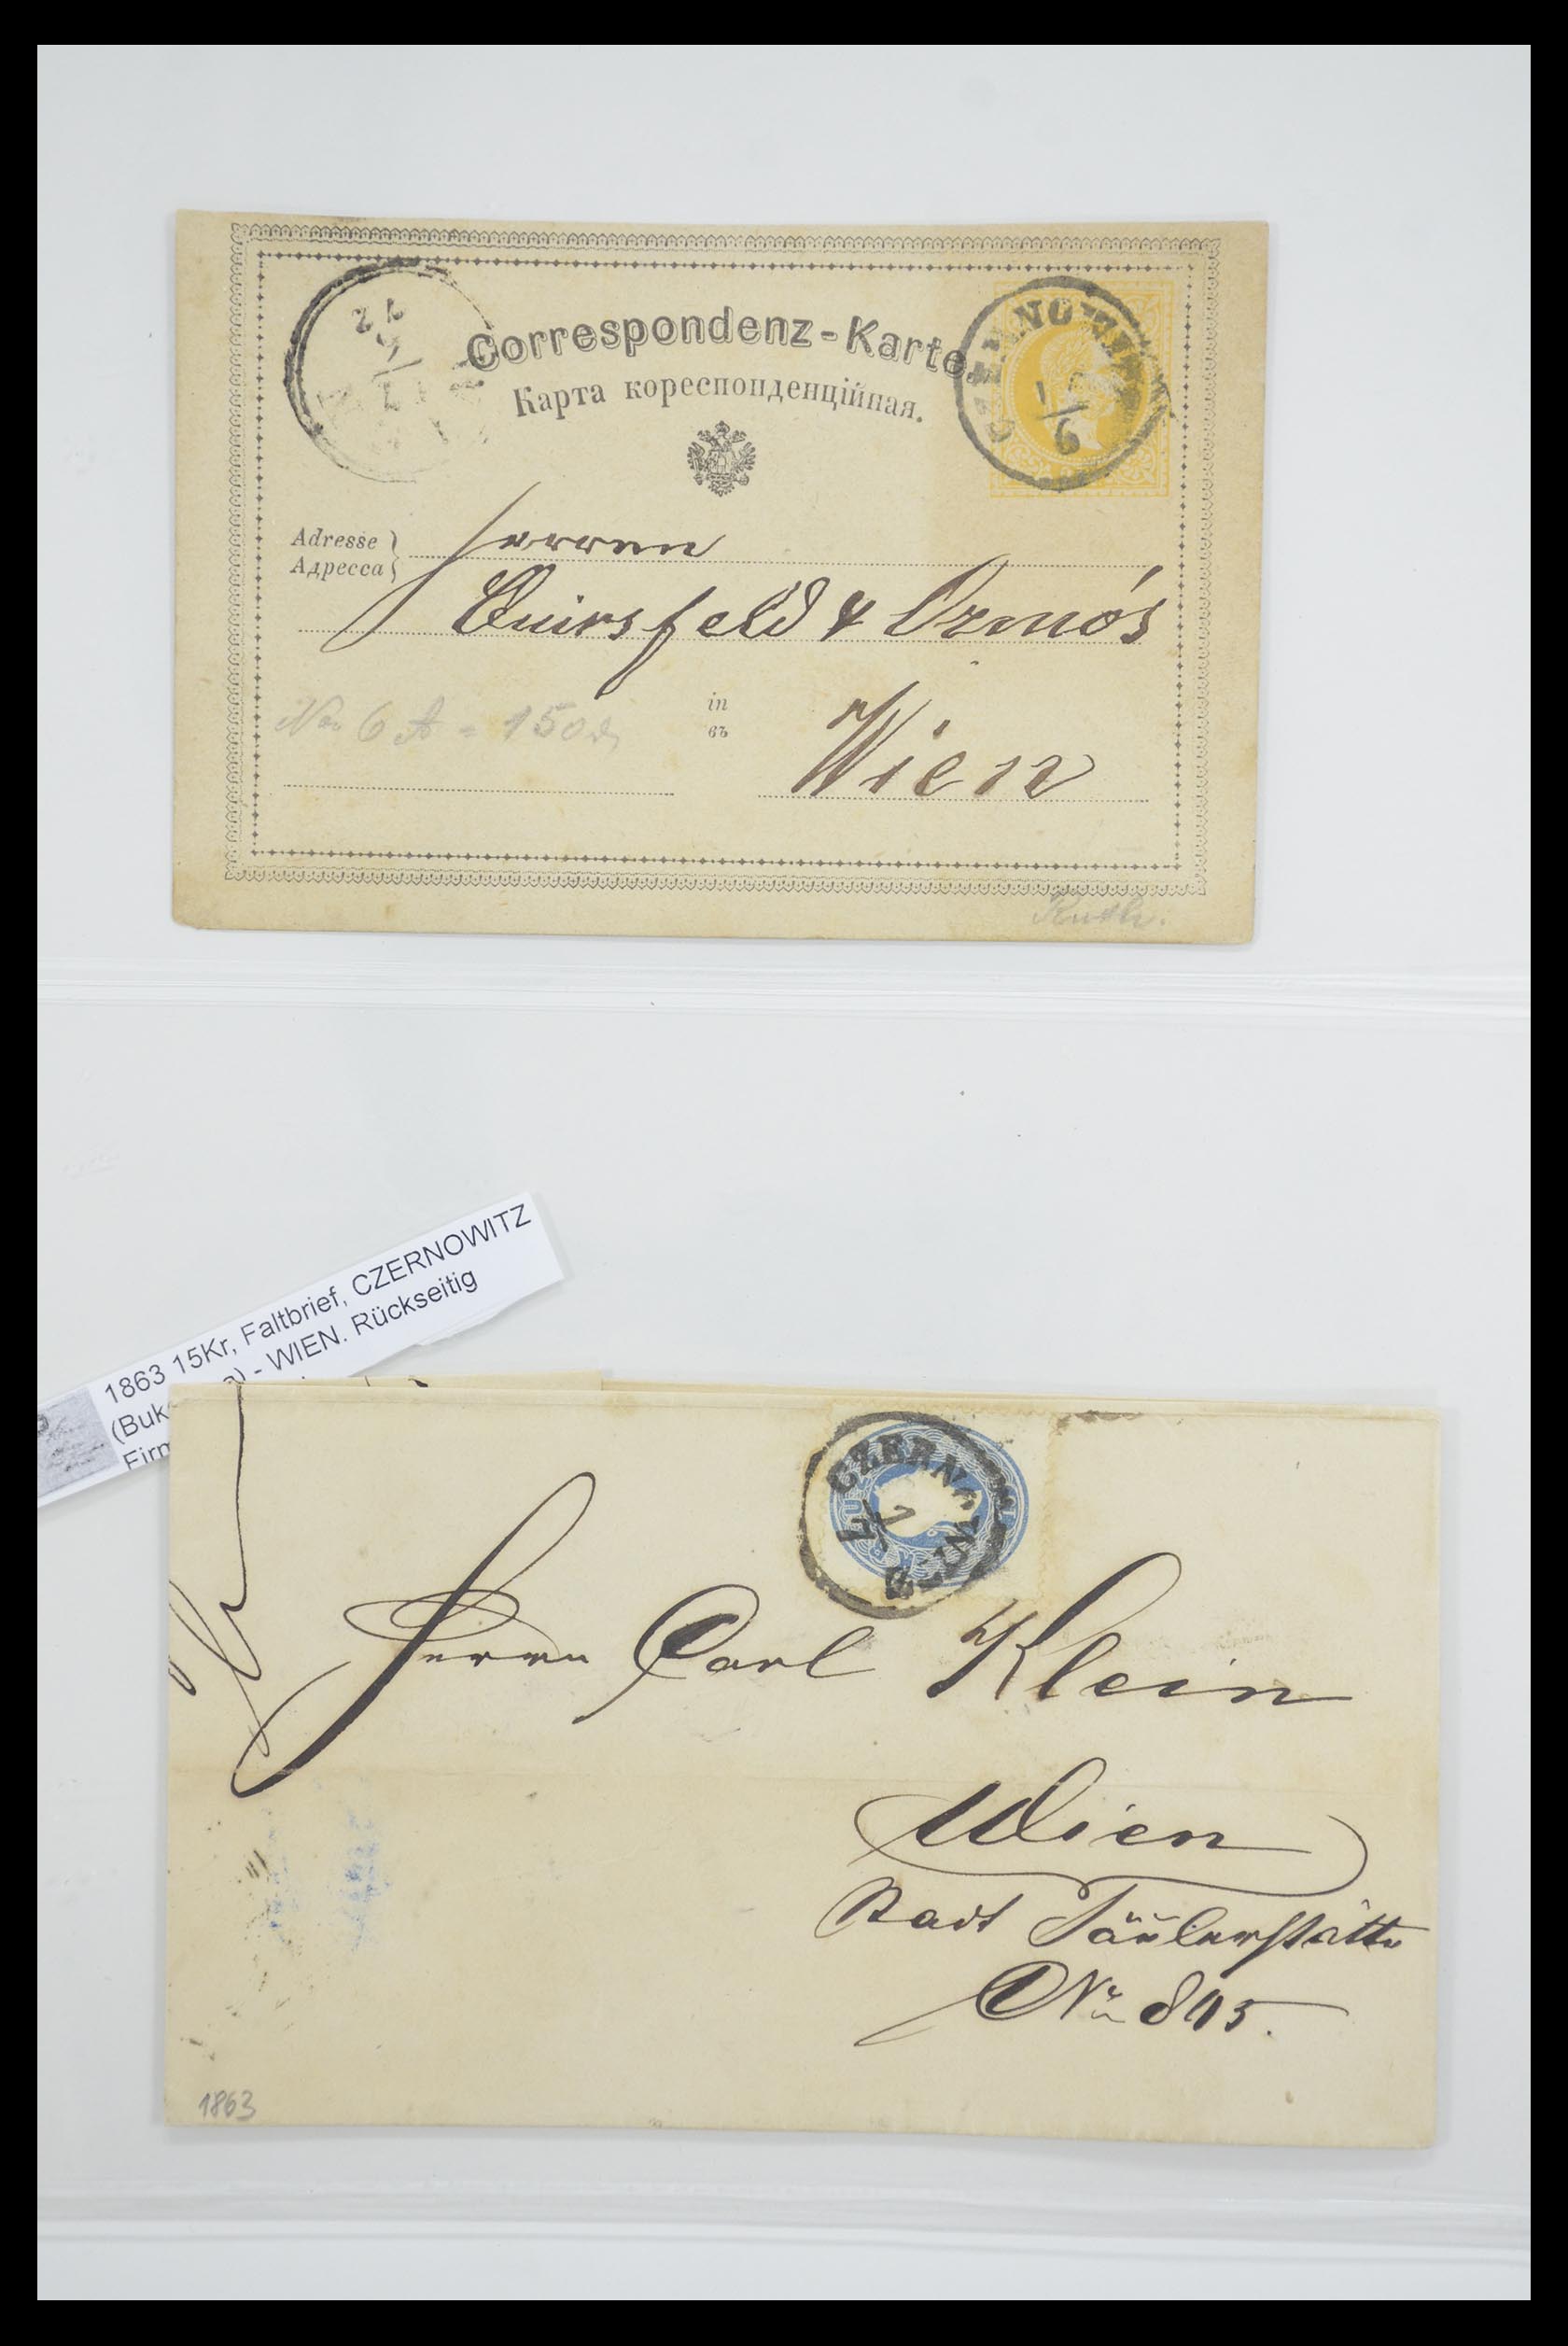 Correspondenz-Karte.
Карта кореспонденційная.
CZERNOWITZ
1/6
72
Adresse
Адресса
Herren
Quirsfeld & Ozmós
No 6 A = 150
in
въ
Wien
Ruth.
1863 15Kr, Faltbrief, CZERNOWITZ
(Buk a) - WIEN. Rückseitig
Firm
CZERNOWITZ
7
Herrn Carl Klein
Wien
Stadt
No 895.
1863